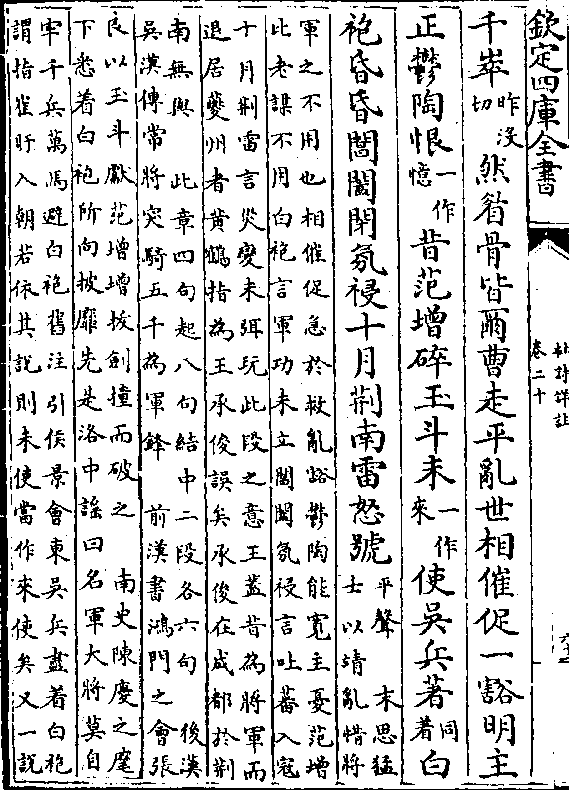 欽定四庫全書
杜詩詳註
卷二十
千崒昨沒切然眉骨皆爾曹走平亂世相催促一豁明主
正鬱陶恨一作憶昔范增碎玉斗未一作來使吳兵著同着白
袍昏昏閶闔閉氛祲十月荊南雷怒號平聲 末思猛士以靖亂惜將
軍之不用也相催促急於救亂豁鬱陶能寬主憂范增
此老謀不用白袍言軍功未立閶闔氛祲言吐蕃入寇
十月荊雷言災變未弭玩此段之意王蓋昔為將軍而
退居夔州者黃鶴指為王承俊誤矣承俊在成都於荊
南無與 此章四句起八句結中二段各六句 後漢
吳漢傳常將突騎五千為軍鋒 前漢書鴻門之會張
良以玉斗獻范增增拔劍撞而破之 南史陳慶之麾
下悉着白袍所向披靡先是洛中謡曰名軍大將莫自
牢千兵萬馬避白袍舊注引侯景會東吳兵盡着白袍
謂指崔旰入朝若依其說則未使當作來使矣又一說